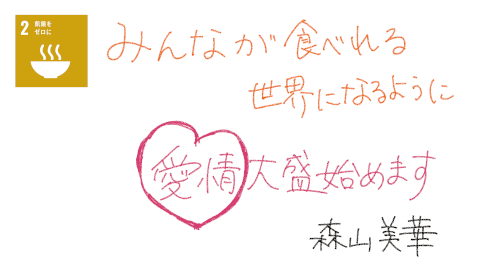 2 飢餓を
ゼロに
みんなが食べれる
世界になるように
愛情大盛始めます
森山美華